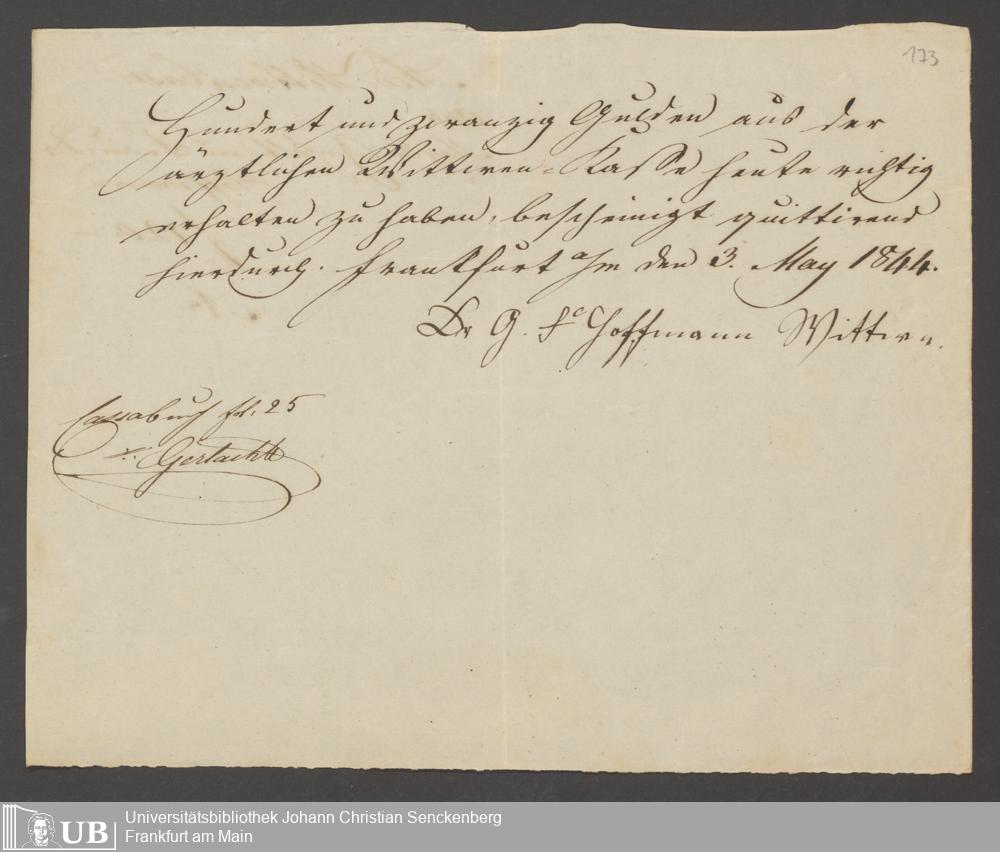 173
Hundert und zwanzig Gulden aus der
ärztlichen Wittwen-Kasse heute richtig
erhalten zu haben, bescheinigt quittirend
hierdurch. Frankfurt a/m den 3. May 1844.
Dr G. Fc Hoffmann Wittwe.
Cassabuch fol: 25
Gerlach
UB Universitätsbibliothek Johann Christian Senckenberg
Frankfurt am Main